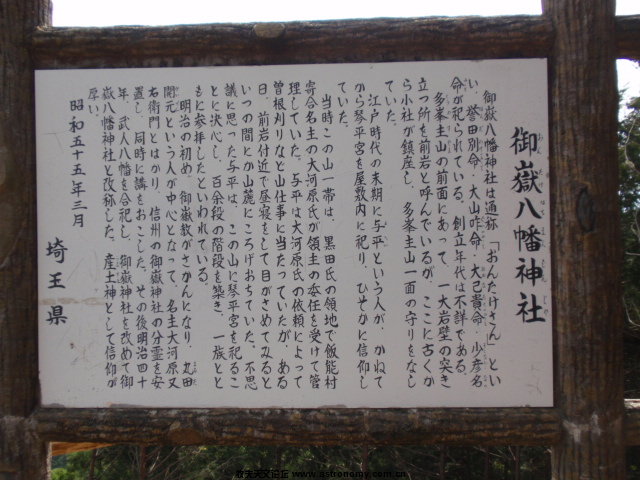 御嶽八幡神社
御嶽八幡神社は通称「おんたけさん」とい
い、誉田別命・大山咋命・大己貴命・少彦名
命が祀られている。創立年代は不詳である。
多峯主山の前面にあって、一大岩壁の突き
立つ所を前岩と呼んでいるが、ここに古くか
ら小社が鎮座し、多峯主山一面の守りをなし
ていた。
江戸時代の末期に与平という人が、かねて
から琴平宮を屋敷内に祀り、ひそかに信仰し
ていた。
当時この山一帯は、黒田氏の領地で飯能村
寄合名主の大河原氏が領主の委任を受けて管
理していた。与平は大河原氏の依頼によって
曽根刈りなど山仕事に当たっていたが、ある
日、前岩付近で昼寝をして目がさめてみると
いつの間にか山麓にころげおちていた。不思
議に思った与平は、この山に琴平宮を祀るこ
とに決心し、百余段の階段を築き、一族とと
もに参拝したといわれている。
明治の初め、御嶽教がさかんになり、丸田
開元という人が中心となって、名主大河原又
右衛門とはかり、信州の御嶽神社の分霊を安
置し、同時に講をおこした。その後明治四十
年、武人八幡を合祀し、御嶽神社を改めて御
嶽八幡神社と改称した。産土神として信仰が
厚い。
昭和五十五年三月
埼玉県
牧夫天文论坛 www.astronomy.com.cn